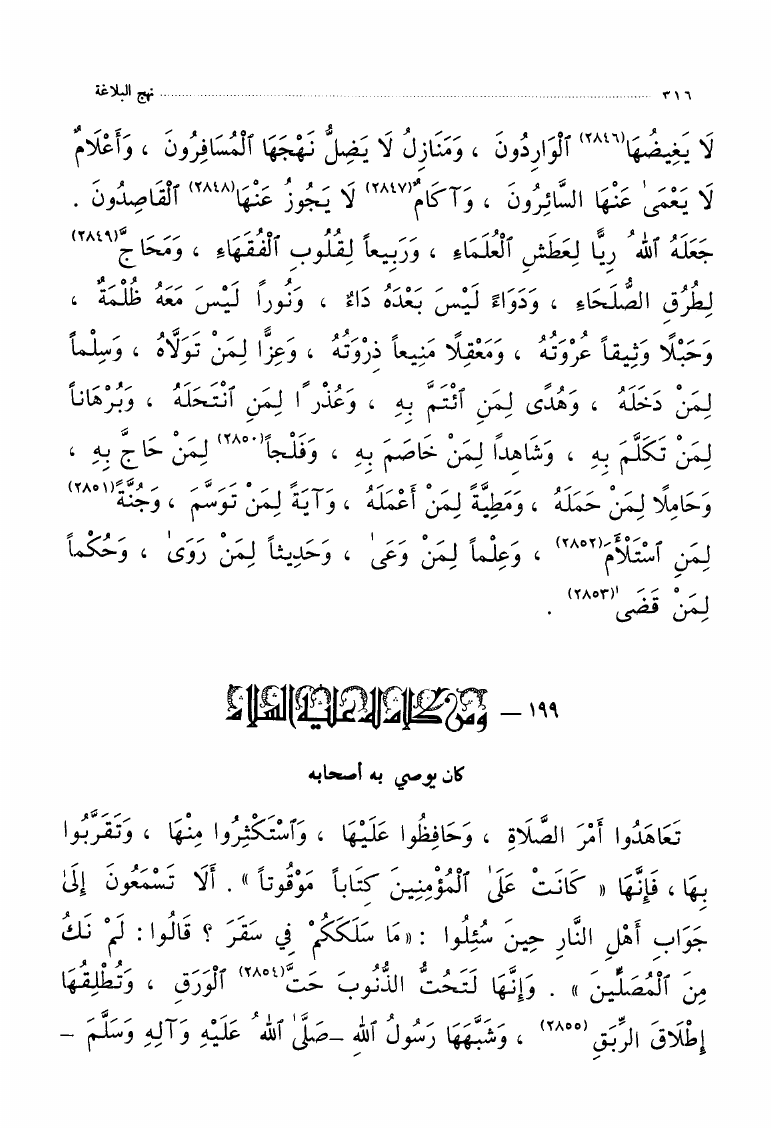 ٣١٦ ........................................ نهج البلاغة
لَا يَغِيضُهَا(٢٨٤٦) ٱلْوَارِدُونَ ، وَمَنَازِلُ لَا يَضِلُّ نَهْجَهَا ٱلْمُسَافِرُونَ ، وَأَعْلَامٌ
لَا يَعْمَىٰ عَنْهَا السَّائِرُونَ ، وَآكَامٌ(٢٨٤٧) لَا يَجُوزُ عَنْهَا(٢٨٤٨) ٱلْقَاصِدُونَ .
جَعَلَهُ ٱللهُ رِيًّا لِعَطَشِ ٱلْعُلَمَاءِ ، وَرَبِيعاً لِقُلُوبِ ٱلْفُقَهَاءِ ، وَمَحَاجَّ(٢٨٤٩)
لِطُرُقِ الصُّلَحَاءِ ، وَدَوَاءً لَيْسَ بَعْدَهُ دَاءٌ ، وَنُوراً لَيْسَ مَعَهُ ظُلْمَةٌ ،
وَحَبْلًا وَثِيقاً عُرْوَتُهُ ، وَمَعْقِلًا مَنِيعاً ذِرْوَتُهُ ، وَعِزًّا لِمَنْ تَوَلَّاهُ ، وَسِلْماً
لِمَنْ دَخَلَهُ ، وَهُدًى لِمَنِ ٱئْتَمَّ بِهِ ، وَعُذْراً لِمَنِ ٱنْتَحَلَهُ ، وَبُرْهَاناً
لِمَنْ تَكَلَّمَ بِهِ ، وَشَاهِداً لِمَنْ خَاصَمَ بِهِ ، وَفَلْجاً(٢٨٥٠) لِمَنْ حَاجَّ بِهِ ،
وَحَامِلًا لِمَنْ حَمَلَهُ ، وَمَطِيَّةً لِمَنْ أَعْمَلَهُ ، وَآيَةً لِمَنْ تَوَسَّمَ ، وَجُنَّةً(٢٨٥١)
لِمَنِ ٱسْتَلْأَمَ(٢٨٥٢) ، وَعِلْماً لِمَنْ وَعَىٰ ، وَحَدِيثاً لِمَنْ رَوَىٰ ، وَحُكْماً
لِمَنْ قَضَىٰ(٢٨٥٣) .
١٩٩ – ومن كلام له عليه السلام
كان يوصي به أصحابه
تَعَاهَدُوا أَمْرَ الصَّلَاةِ ، وَحَافِظُوا عَلَيْهَا ، وَٱسْتَكْثِرُوا مِنْهَا ، وَتَقَرَّبُوا
بِهَا ، فَإِنَّهَا « كَانَتْ عَلَىٰ ٱلْمُؤْمِنِينَ كِتَاباً مَوْقُوتاً » . أَلَا تَسْمَعُونَ إِلَىٰ
جَوَابِ أَهْلِ النَّارِ حِينَ سُئِلُوا : «مَا سَلَكَكُمْ فِي سَقَرَ ؟ قَالُوا: لَمْ نَكُ
مِنَ ٱلْمُصَلِّينَ » . وَإِنَّهَا لَتَحُتُّ الذُّنُوبَ حَتَّ(٢٨٥٤) ٱلْوَرَقِ ، وَتُطْلِقُهَا
إِطْلَاقَ الرِّبَقِ(٢٨٥٥) ، وَشَبَّهَهَا رَسُولُ ٱللهِ –صَلَّىٰ ٱللهُ عَلَيْهِ وَآلِهِ وَسَلَّمَ –